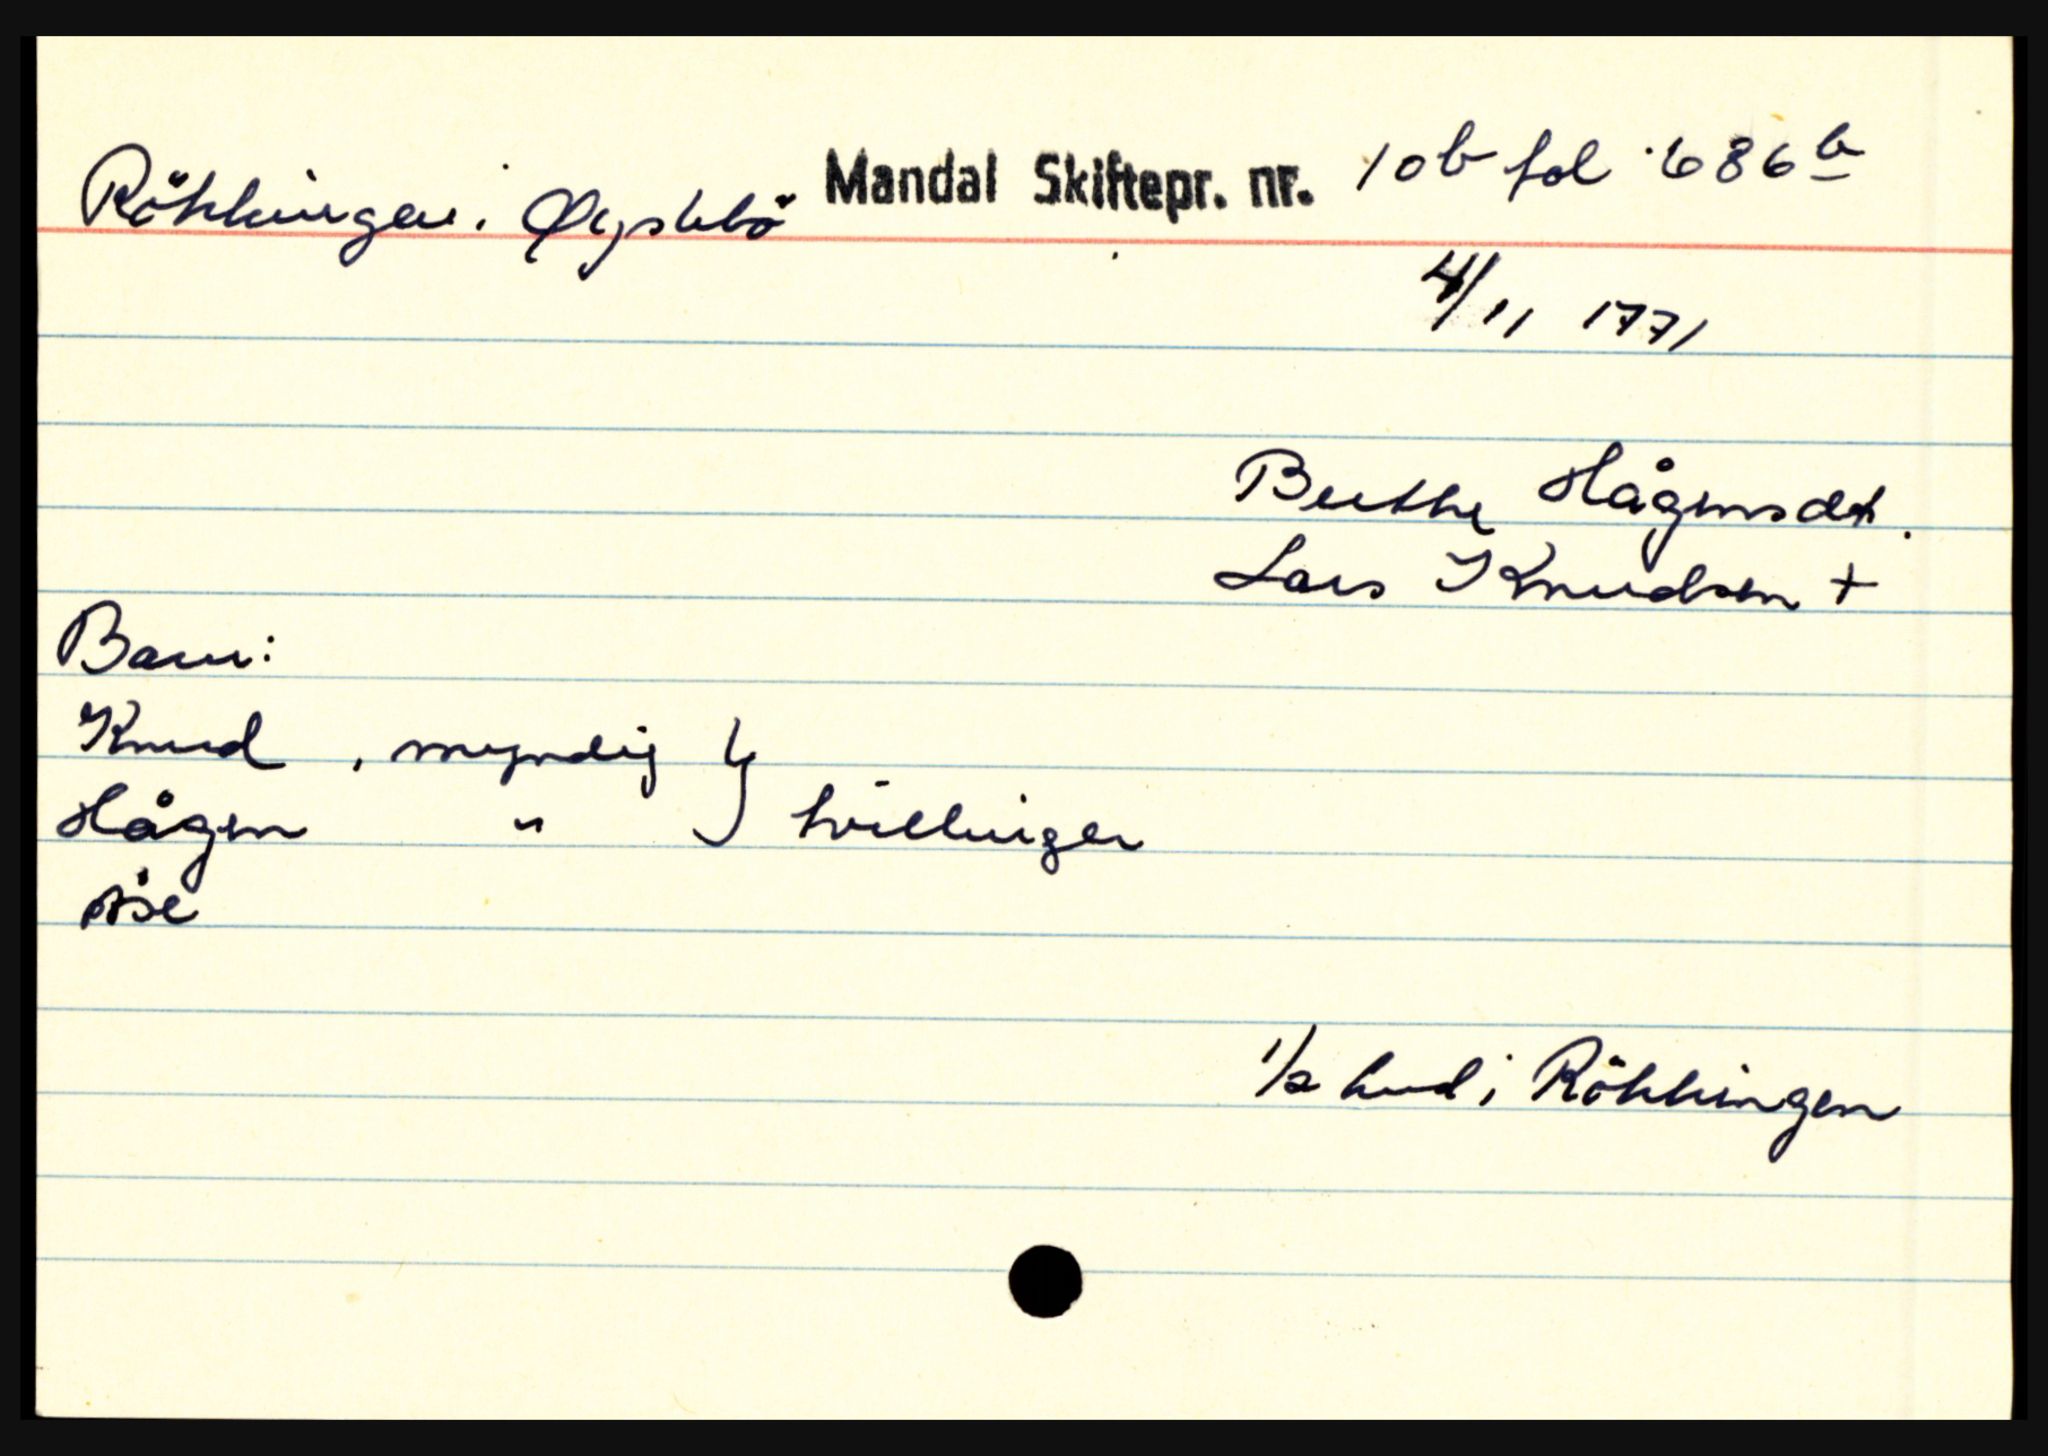 Rökkingen i Øyslebö Mandal Skiftepr. nr. 10b fol 686b
4/11 1771
Berthe Hågensdt.
Lars Knudsen +
Barn:
Knud, myndig }
Hågen " } tvillinger
Åse
1/2 hud i Rökkingen